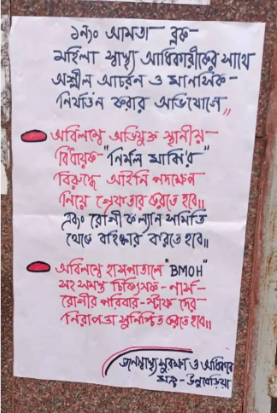 ১নং আমতা ব্লক
মহিলা স্বাস্থ্য আধিকারীকের সাথে
অশ্লীল আচরন ও মানসিক-
নির্যাতন করার অভিযোগে,,
অবিলম্বে অভিযুক্ত স্থানীয়
বিধায়ক "নির্মল মাজির"
বিরুদ্ধে আইনি পদক্ষেপ
নিয়ে গ্রেফতার করতে হবে॥
এবং রোগী কল্যান সমিতি
থেকে বহিষ্কার করতে হবে॥
অবিলম্বে হাসপাতালে "BMOH"
সহ সমস্ত চিকিৎসক-নার্স-
রোগীর পরিবার-স্টাফ দের
নিরাপত্তা সুনিশ্চিত করতে হবে॥
জনস্বাস্থ্য সুরক্ষা ও অধিকার
মঞ্চ-উলুবেড়িয়া